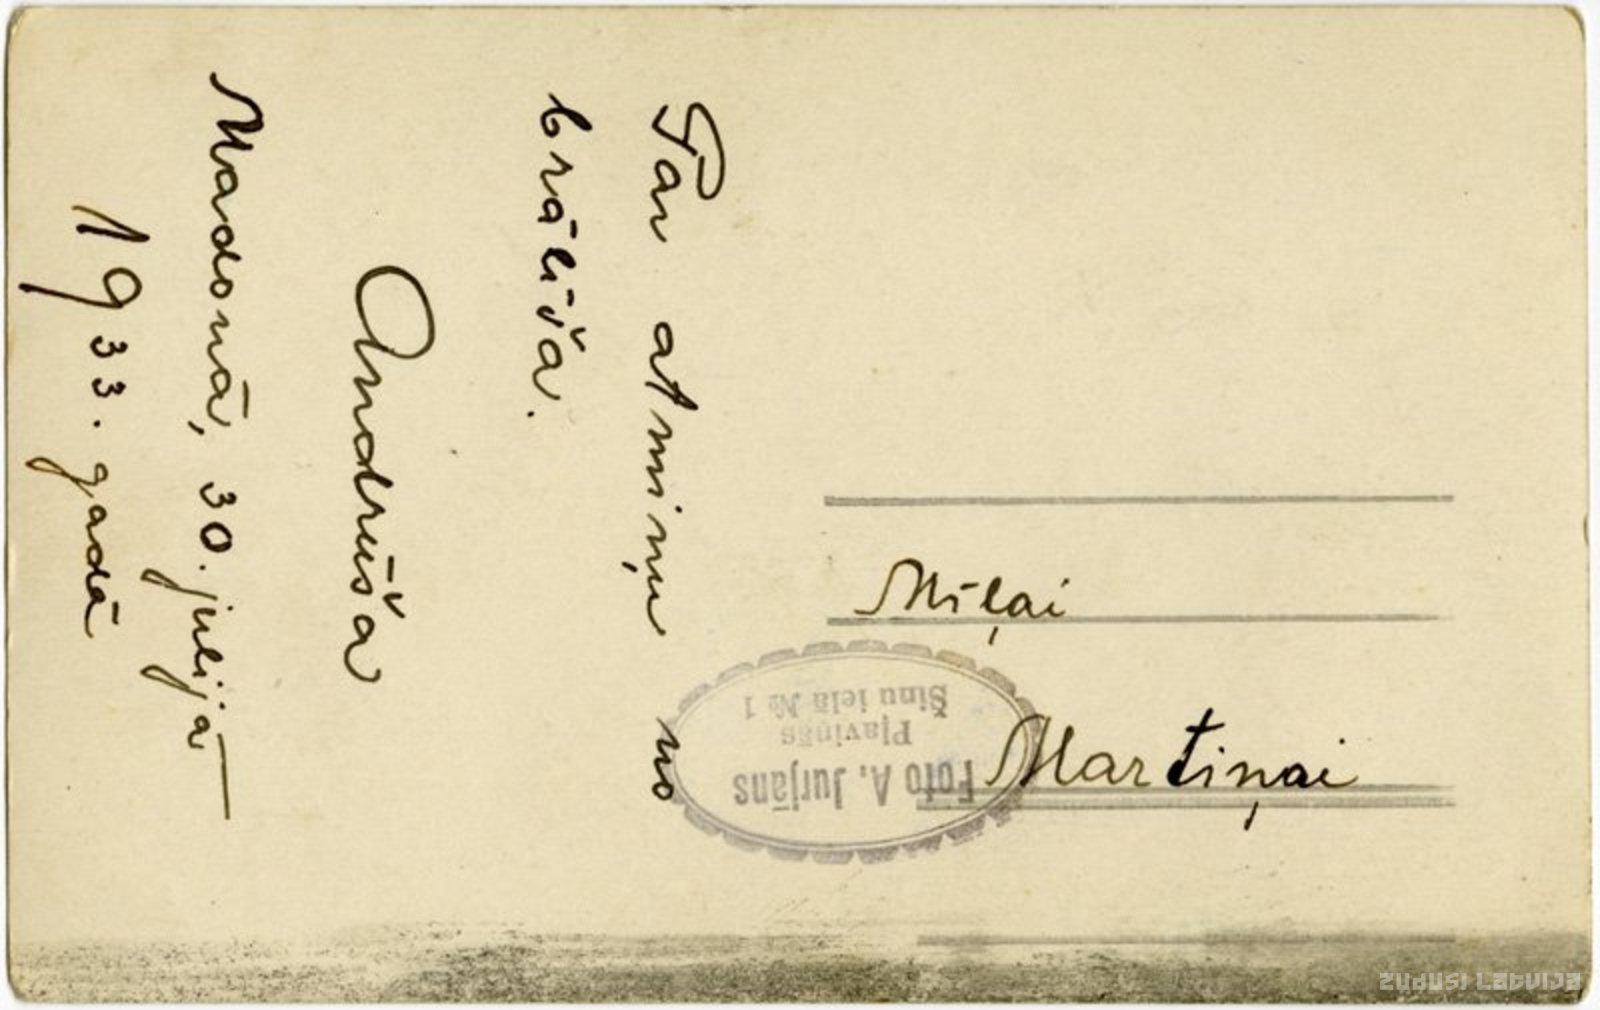 Par atmiņu no
brālīša.
Andrūša
Madonā, 30. julijā
1933. gadā
Mīļai
Martiņai
Foto A. Jurjāns
Pļaviņās
Šiņu ielā № 1
zudusi Latvija